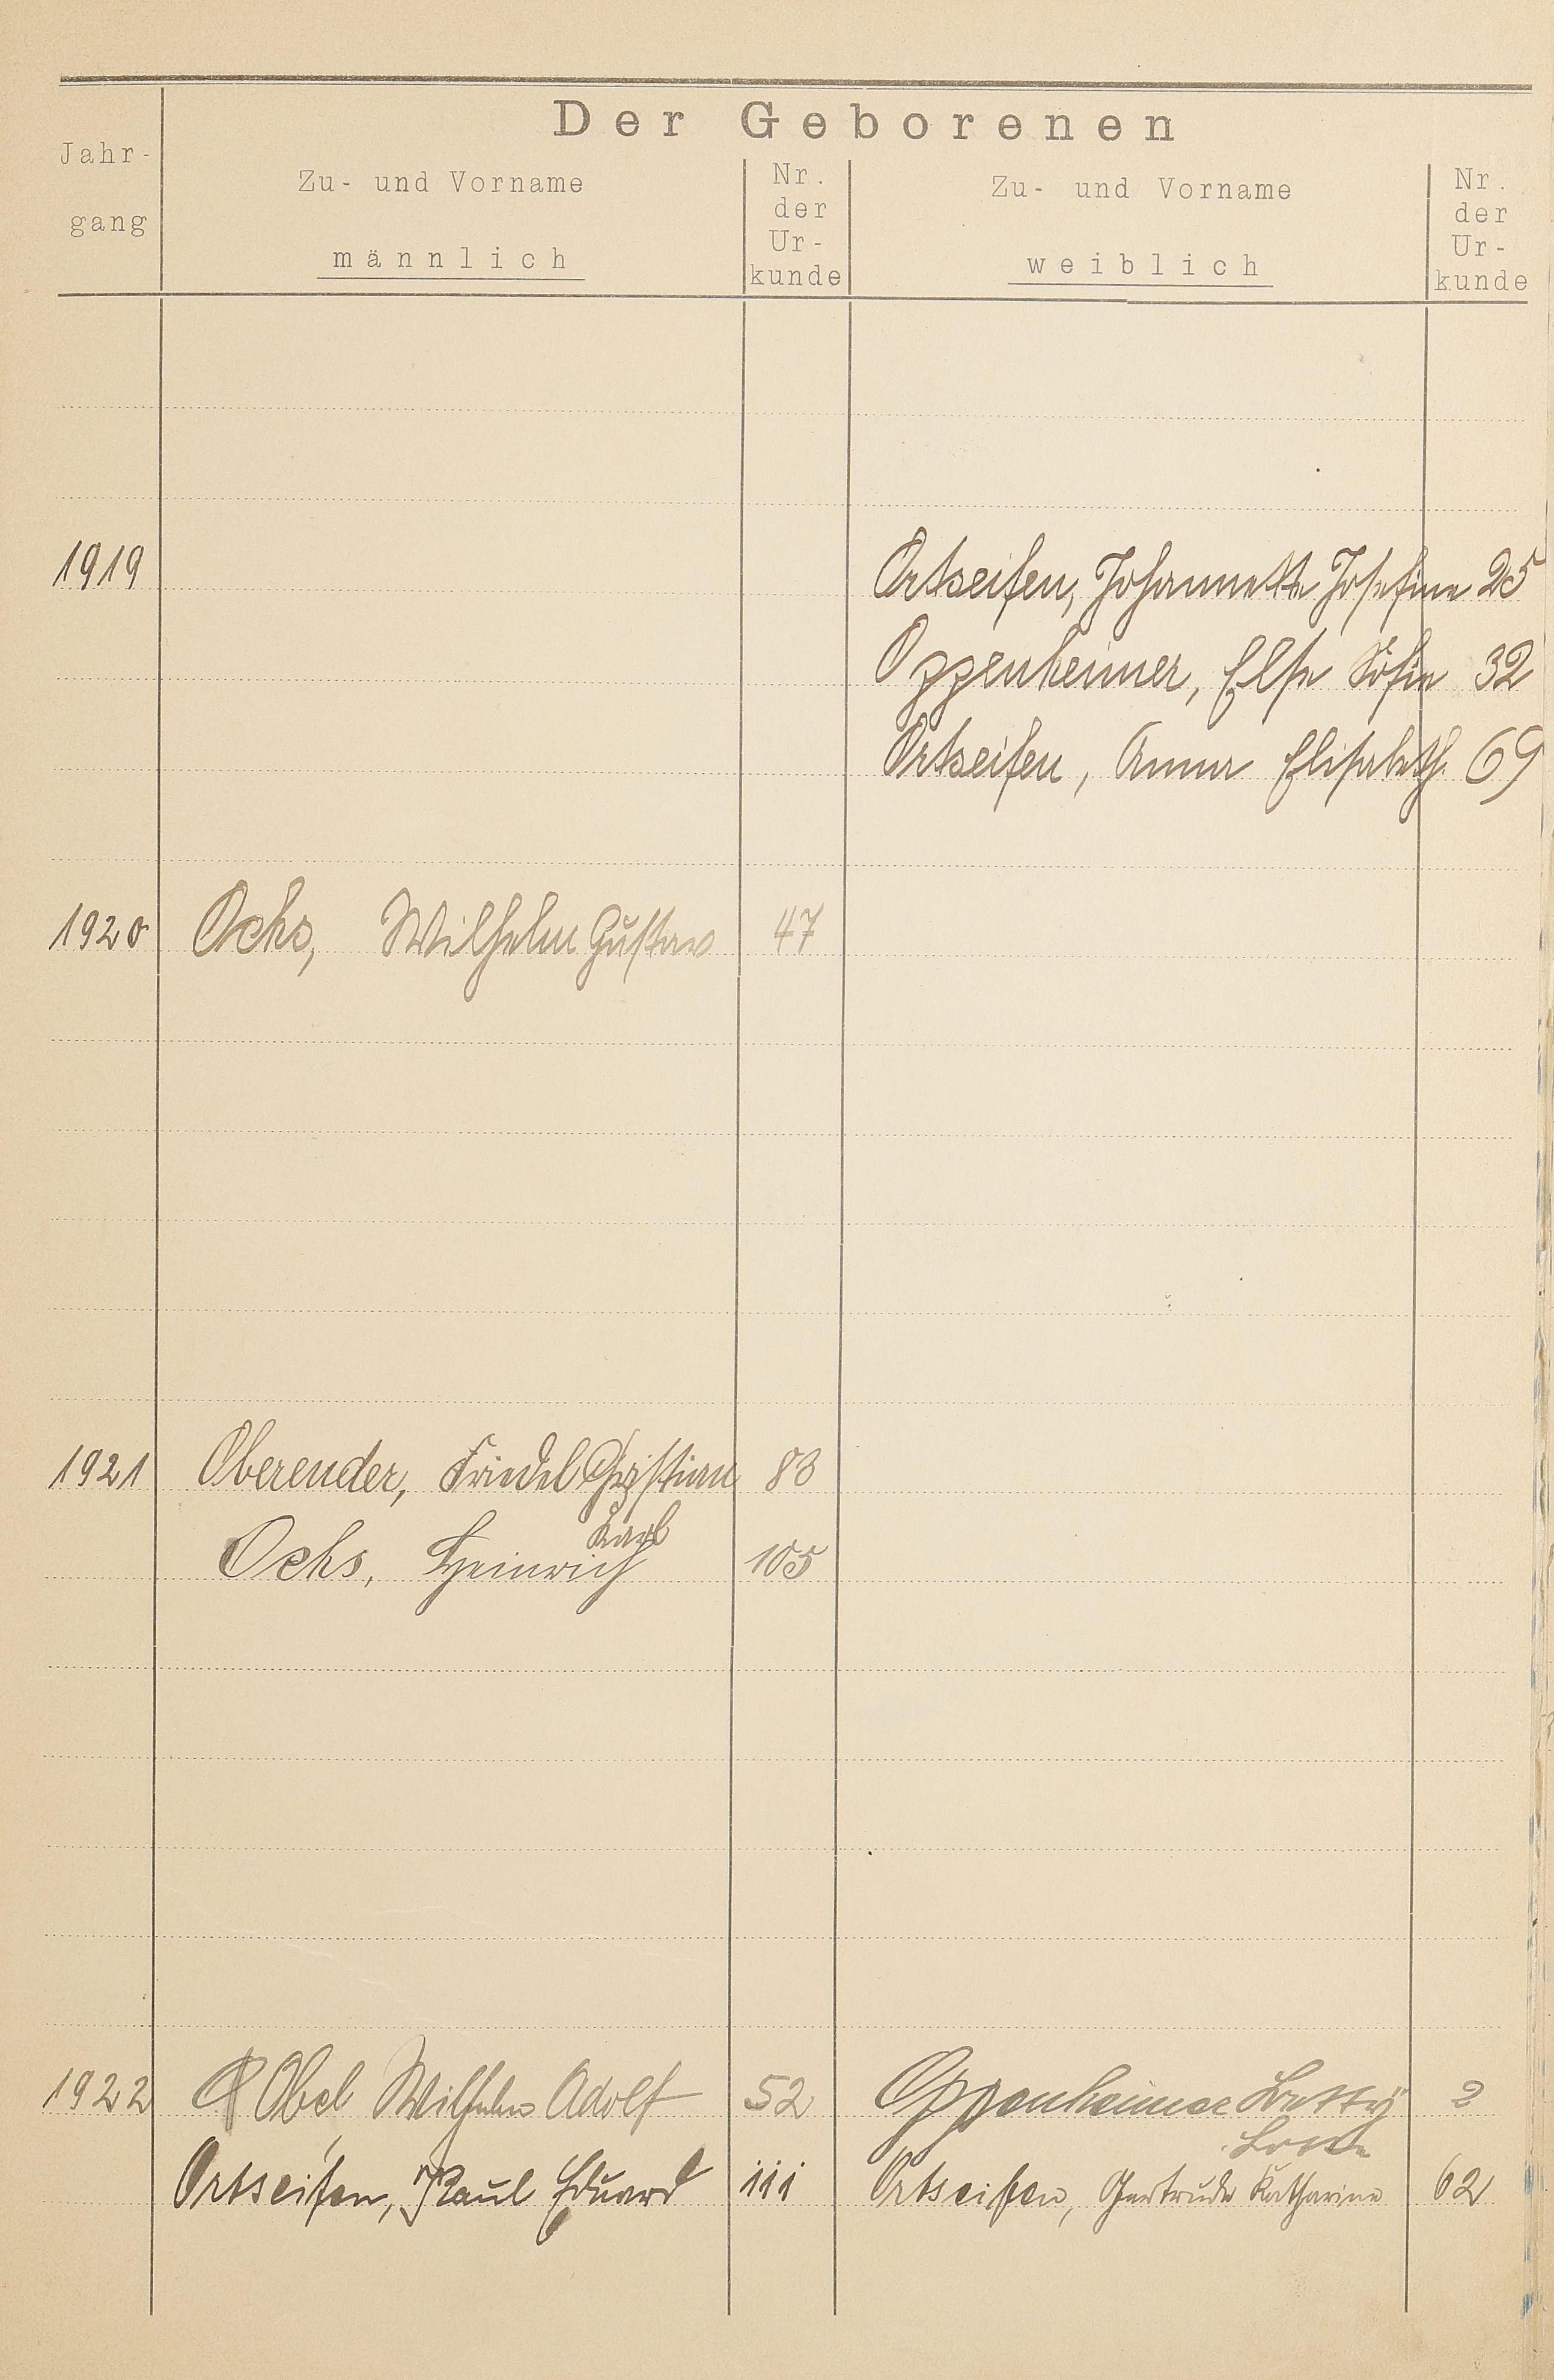 Der Geborenen
Jahr-
gang
Zu- und Vorname
männlich
Nr.
der
Ur-
kunde
Zu- und Vorname
weiblich
Nr.
der
Ur-
kunde
1919 Ortseifen, Johannette Josefine 25
Oppenheimer, Else Sofie 32
Ortseifen, Anna Elisabeth 69
1920 Ochs, Wilhelm Gustav 47
1921 Oberender, Friedel Christian 83
Karl
Ochs, Heinrich 105
1922 Obel Wilhelm Adolf 52 Oppenheimer Betty 2
Ortseifen, Paul Eduard 111 Ortseifen, Gertrude Katharine 62